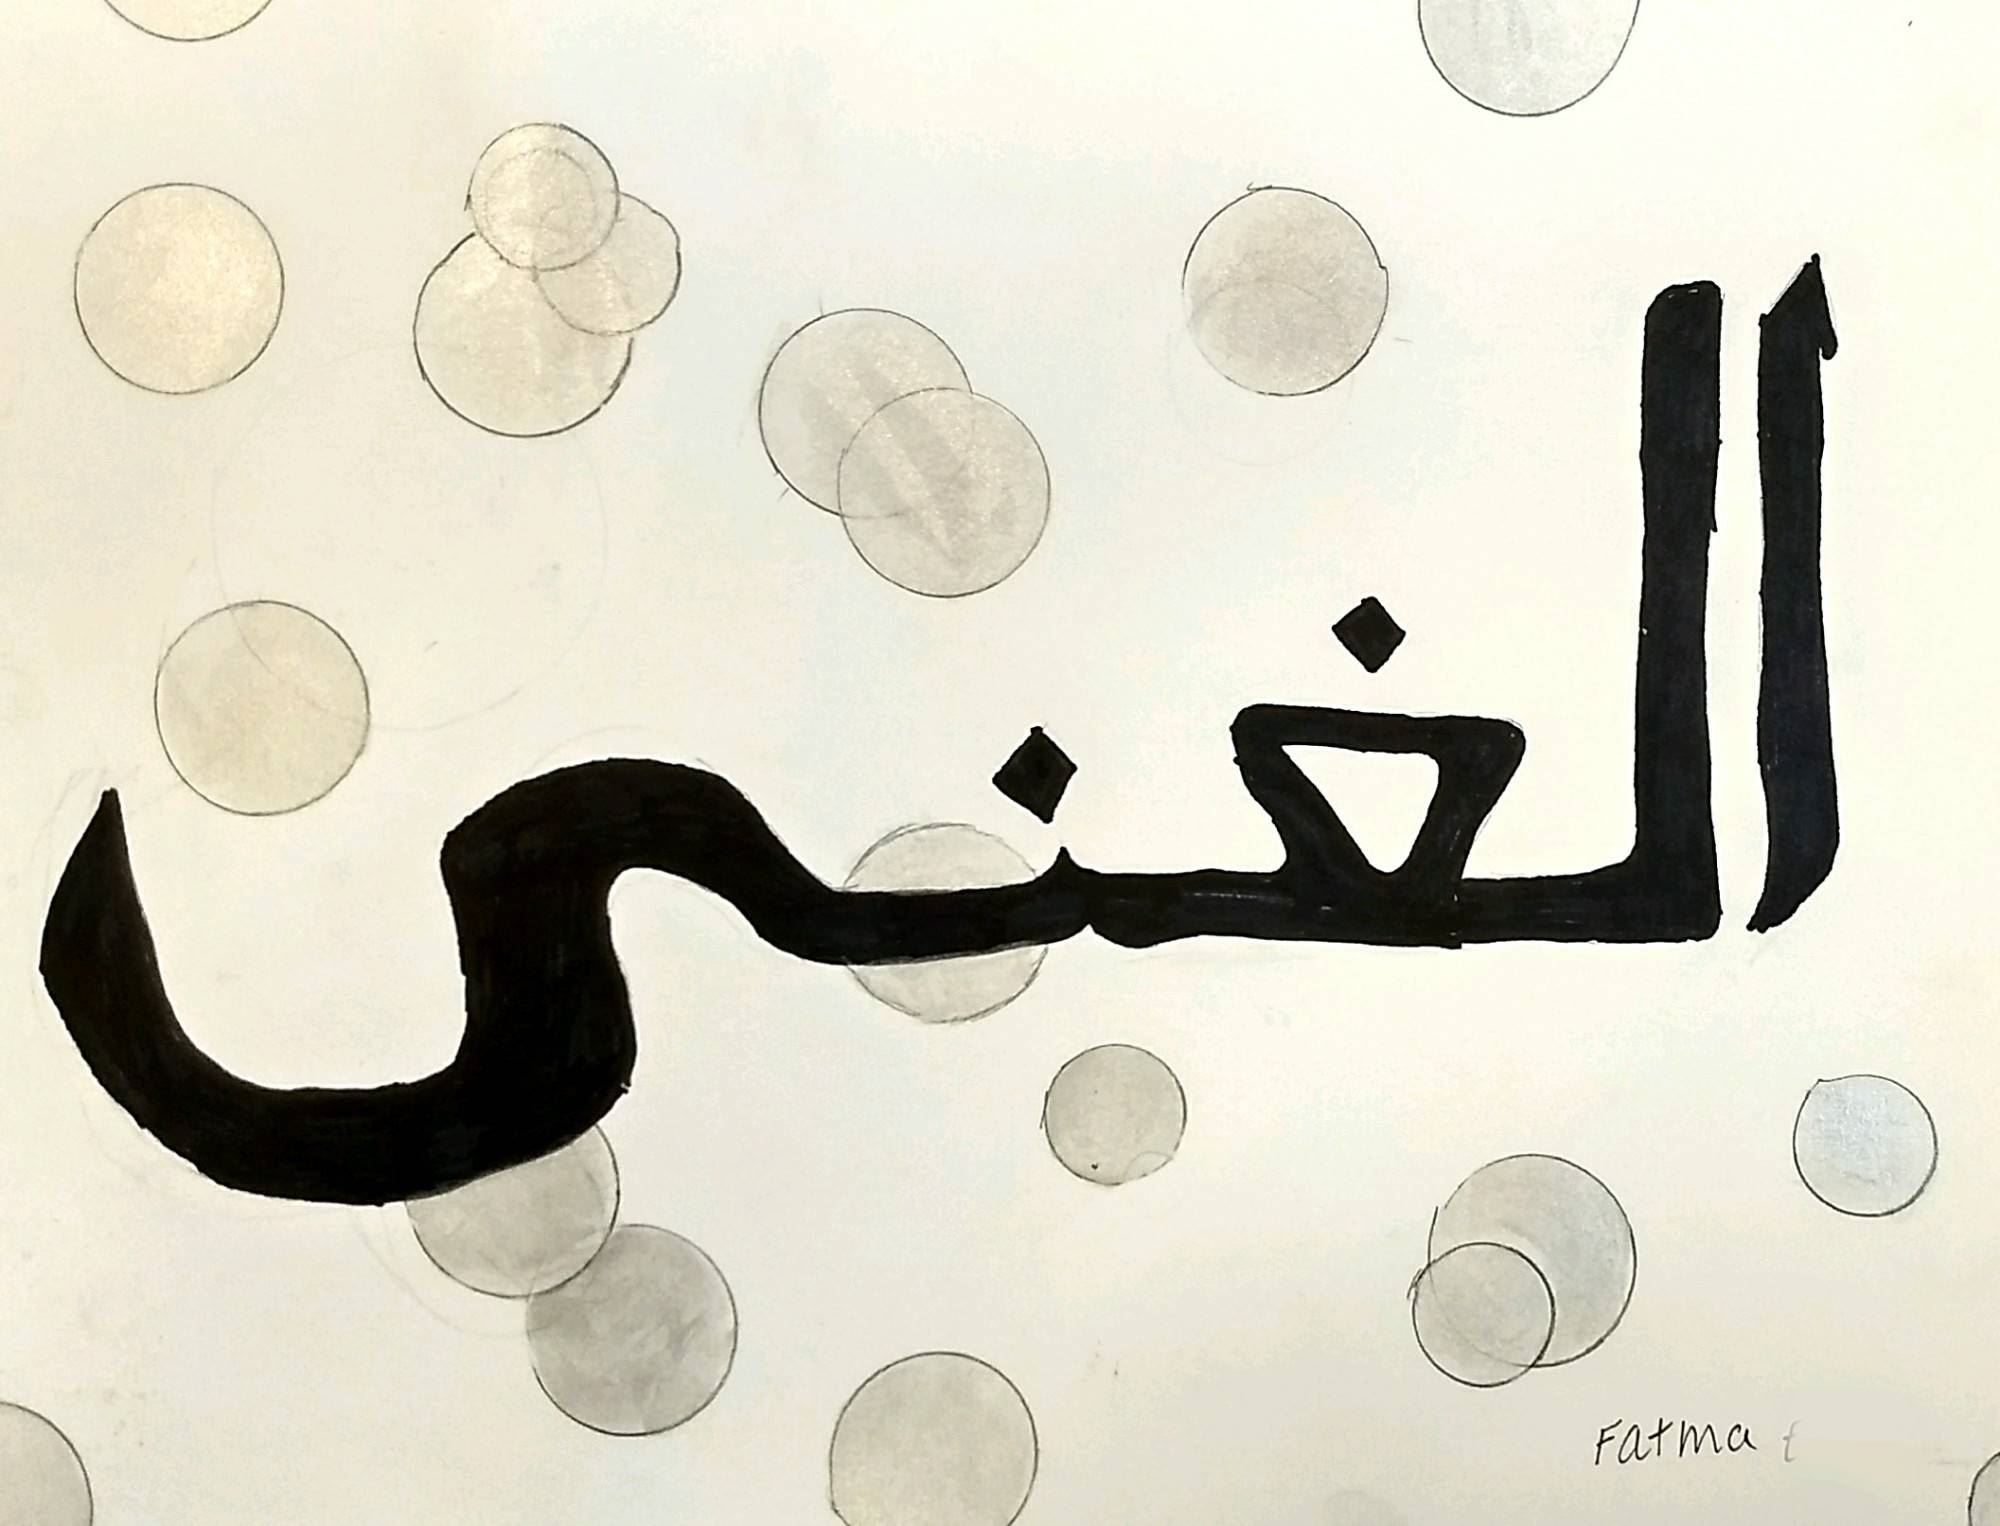 الغني
Fatma